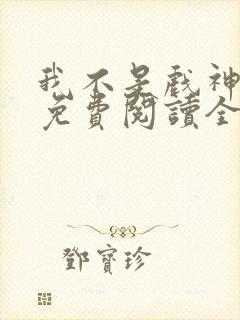 我不是戲神
免費閱讀全
鄧寶珍